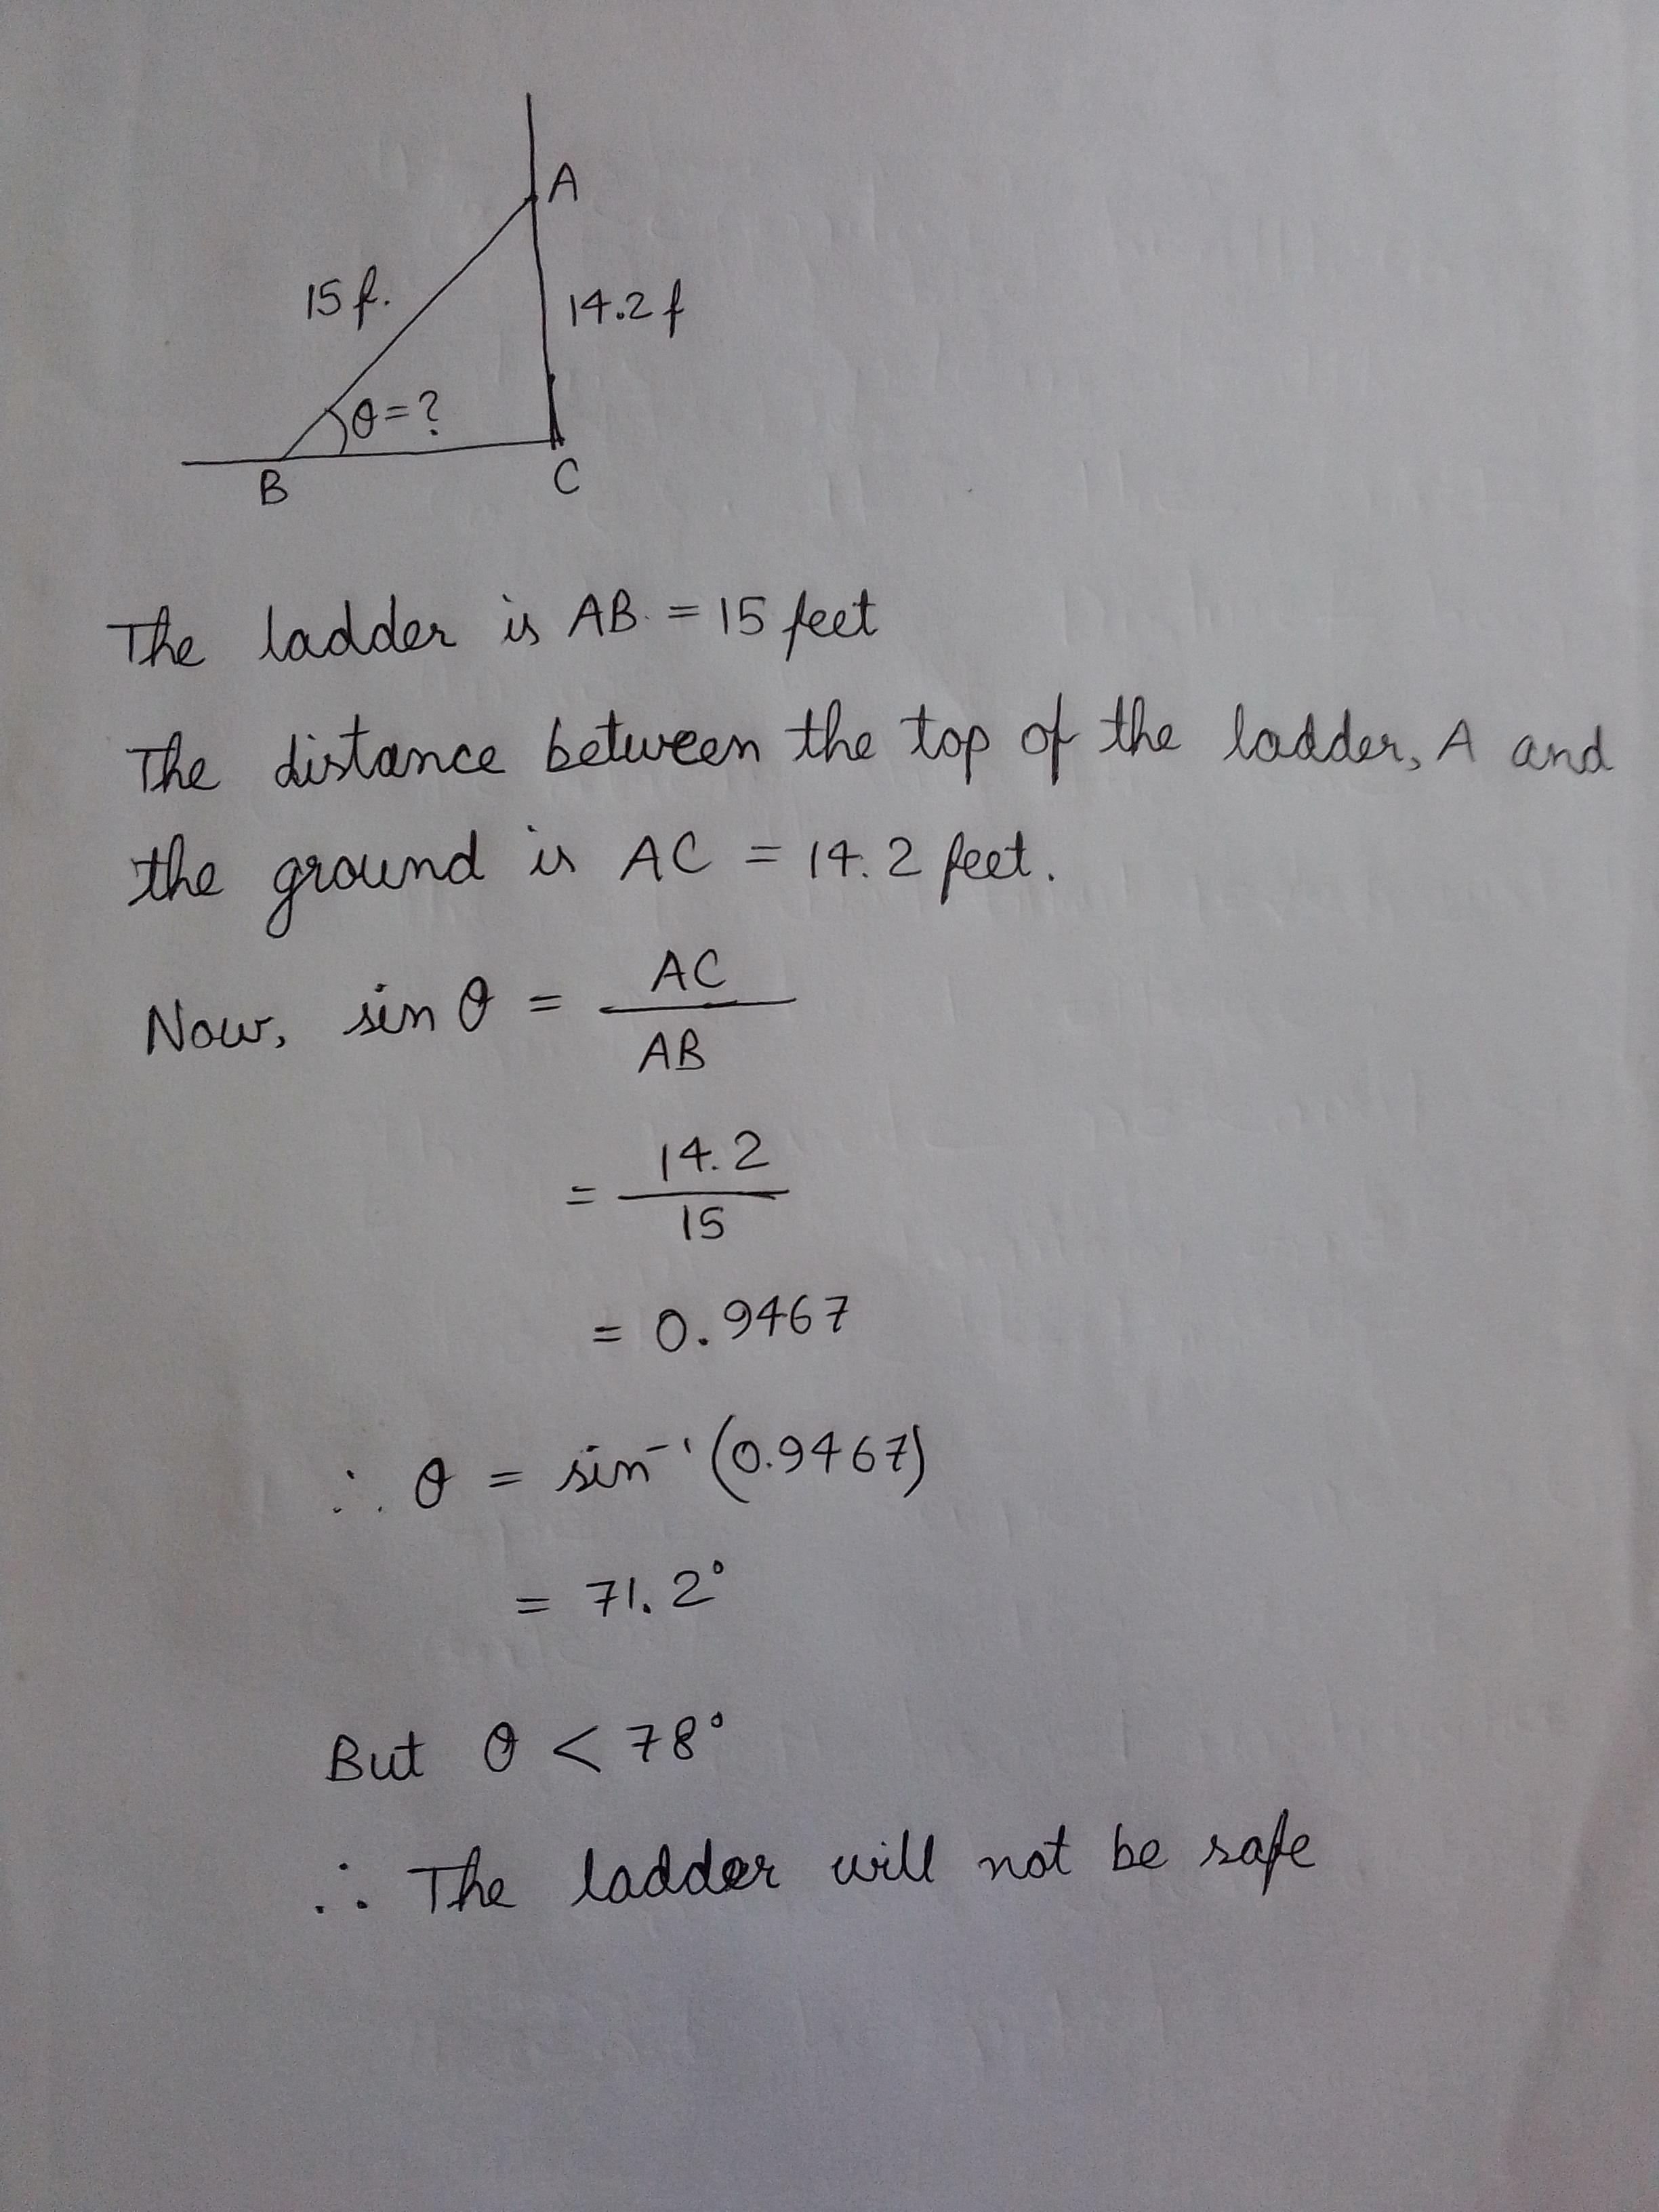 A
15 f.
14.2 f
θ = ?
B
C
The ladder is AB = 15 feet
The distance between the top of the ladder, A and
the ground is AC = 14.2 feet.
Now, sin θ = AC
AB
= 14.2
15
= 0.9467
∴ θ = sin⁻¹ (0.9467)
= 71.2°
But θ < 78°
∴ The ladder will not be safe